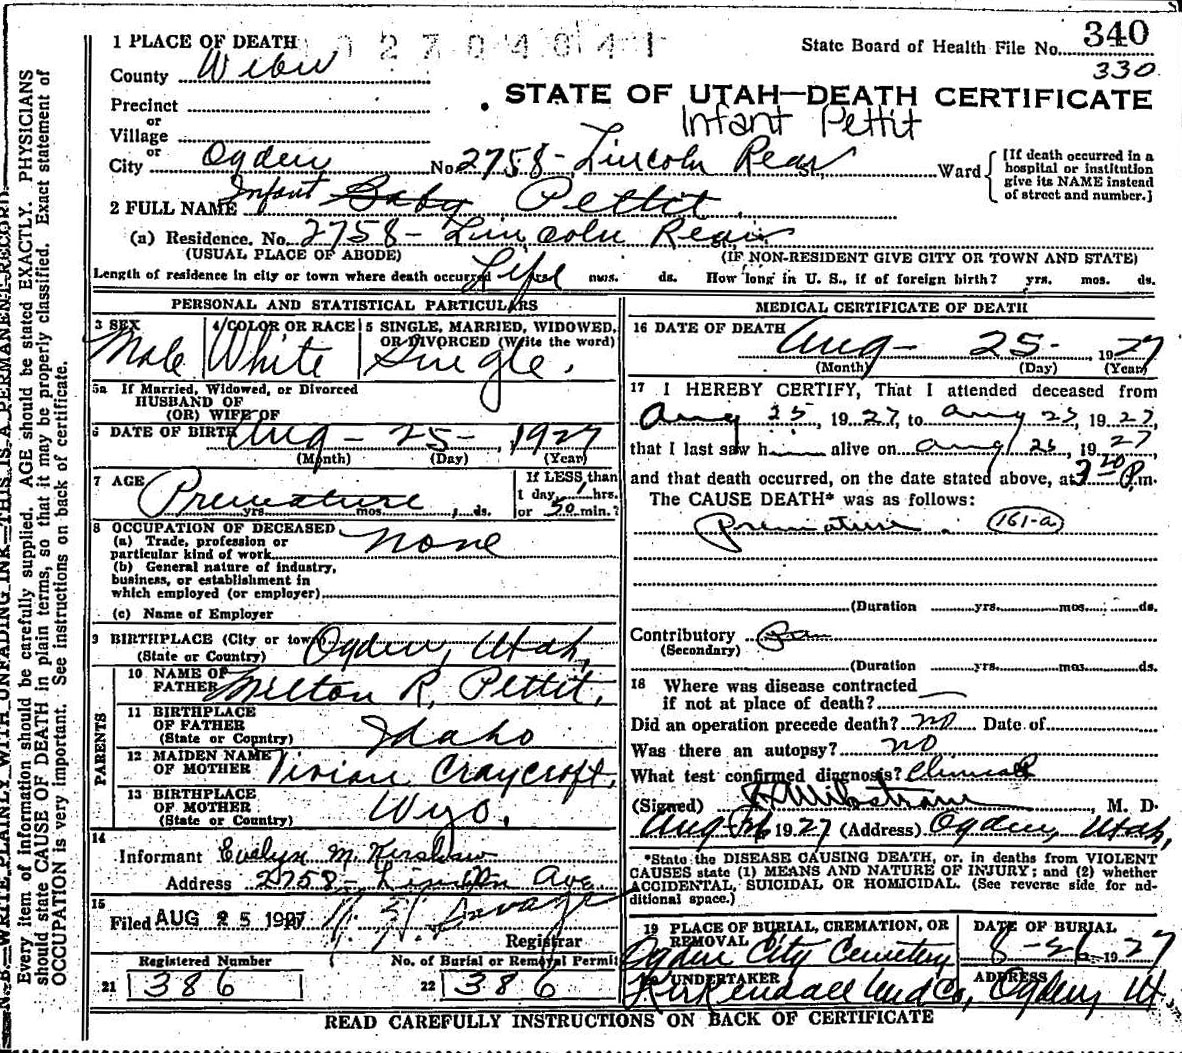 1 PLACE OF DEATH
State Board of Health File No. 340
County Weber
330
Precinct
STATE OF UTAH—DEATH CERTIFICATE
or
Village
Infant Pettit
or
City Ogden No. 2758- Lincoln Rear St, Ward
[If death occurred in a hospital or institution give its NAME instead of street and number.]
2 FULL NAME Infant Baby Pettit
(a) Residence. No. 2758- Lincoln Rear
(USUAL PLACE OF ABODE) (IF NON-RESIDENT GIVE CITY OR TOWN AND STATE)
Length of residence in city or town where death occurred Life yrs. mos. ds. How long in U. S., if of foreign birth? yrs. mos. ds.
PERSONAL AND STATISTICAL PARTICULARS
3 SEX Male
4 COLOR OR RACE White
5 SINGLE, MARRIED, WIDOWED, OR DIVORCED (Write the word) Single.
5a If Married, Widowed, or Divorced
HUSBAND OF
(OR) WIFE OF
6 DATE OF BIRTH Aug - 25 - 1927
(Month) (Day) (Year)
7 AGE Premature
yrs. mos. ds.
If LESS than
1 day, hrs.
or 50 min.?
8 OCCUPATION OF DECEASED
(a) Trade, profession or
particular kind of work none
(b) General nature of industry,
business, or establishment in
which employed (or employer)
(c) Name of Employer
9 BIRTHPLACE (City or town) Ogden, Utah,
(State or Country)
PARENTS
10 NAME OF
FATHER Milton R. Pettit,
11 BIRTHPLACE
OF FATHER
(State or Country) Idaho
12 MAIDEN NAME
OF MOTHER Vivian Craycroft,
13 BIRTHPLACE
OF MOTHER
(State or Country) Wyo.
14
Informant Evelyn M. Kershaw
Address 2758- Lincoln Ave
15
Filed AUG 25 1927
Registrar
Registered Number
21 386
No. of Burial or Removal Permit
22 386
MEDICAL CERTIFICATE OF DEATH
16 DATE OF DEATH Aug - 25 - 1927
(Month) (Day) (Year)
17 I HEREBY CERTIFY, That I attended deceased from
Aug 25, 1927, to Aug 25, 1927,
that I last saw him alive on Aug 25, 1927
and that death occurred, on the date stated above, at 3 20 P.m.
The CAUSE DEATH* was as follows:
Premature. 161-a
(Duration yrs. mos. ds.
Contributory
(Secondary)
(Duration yrs. mos. ds.
18 Where was disease contracted
if not at place of death?
Did an operation precede death? no Date of
Was there an autopsy? no
What test confirmed diagnosis? Clinical
(Signed) M. D.
Aug 26 1927 (Address) Ogden, Utah,
*State the DISEASE CAUSING DEATH, or, in deaths from VIOLENT
CAUSES state (1) MEANS AND NATURE OF INJURY; and (2) whether
ACCIDENTAL, SUICIDAL OR HOMICIDAL. (See reverse side for ad-
ditional space.)
19 PLACE OF BURIAL, CREMATION, OR
REMOVAL
Ogden City Cemetery
DATE OF BURIAL
8-26-1927
20 UNDERTAKER
Kirkendall Und Co,
ADDRESS
Ogden, Ut
READ CAREFULLY INSTRUCTIONS ON BACK OF CERTIFICATE
N. B.—WRITE PLAINLY WITH UNFADING INK—THIS IS A PERMANENT RECORD.
Every item of information should be carefully supplied. AGE should be stated EXACTLY. PHYSICIANS
should state CAUSE OF DEATH in plain terms, so that it may be properly classified. Exact statement of
OCCUPATION is very important. See instructions on back of certificate.